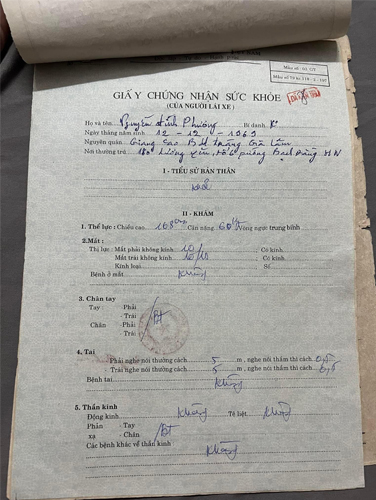 Mẫu số : 01/GT
GIẤY CHỨNG NHẬN SỨC KHỎE
(CỦA NGƯỜI LÁI XE)
Họ và tên Nguyễn Đình Phương Bí danh K
Ngày tháng năm sinh 12 - 12 - 1963
Nguyên quán Giang Cao Bát tràng Gia Lâm
Nơi thường trú Bạch Đằng HN
I - TIỂU SỬ BẢN THÂN
khoẻ
II - KHÁM
1. Thể lực : Chiều cao 168cm Cân nặng 60 Vòng ngực trung bình
2. Mắt :
Thị lực : Mắt phải không kính 10/10 ; Có kính
Mắt trái không kính 10/10 ; Có kính
Kính loại Số
Bệnh ở mắt không
3. Chân tay
Tay - Phải
- Trái
Chân - Phải
- Trái
Bt
4. Tai
Phải nghe nói thường cách 5 m, nghe nói thầm thì cách 0,5
Trái nghe nói thường cách 5 m, nghe nói thầm thì cách 0,5
Bệnh tai không
5. Thần kinh
Động kinh không Tê liệt không
Phản - Tay
xạ - Chân
Bt
Các bệnh khác về thần kinh không